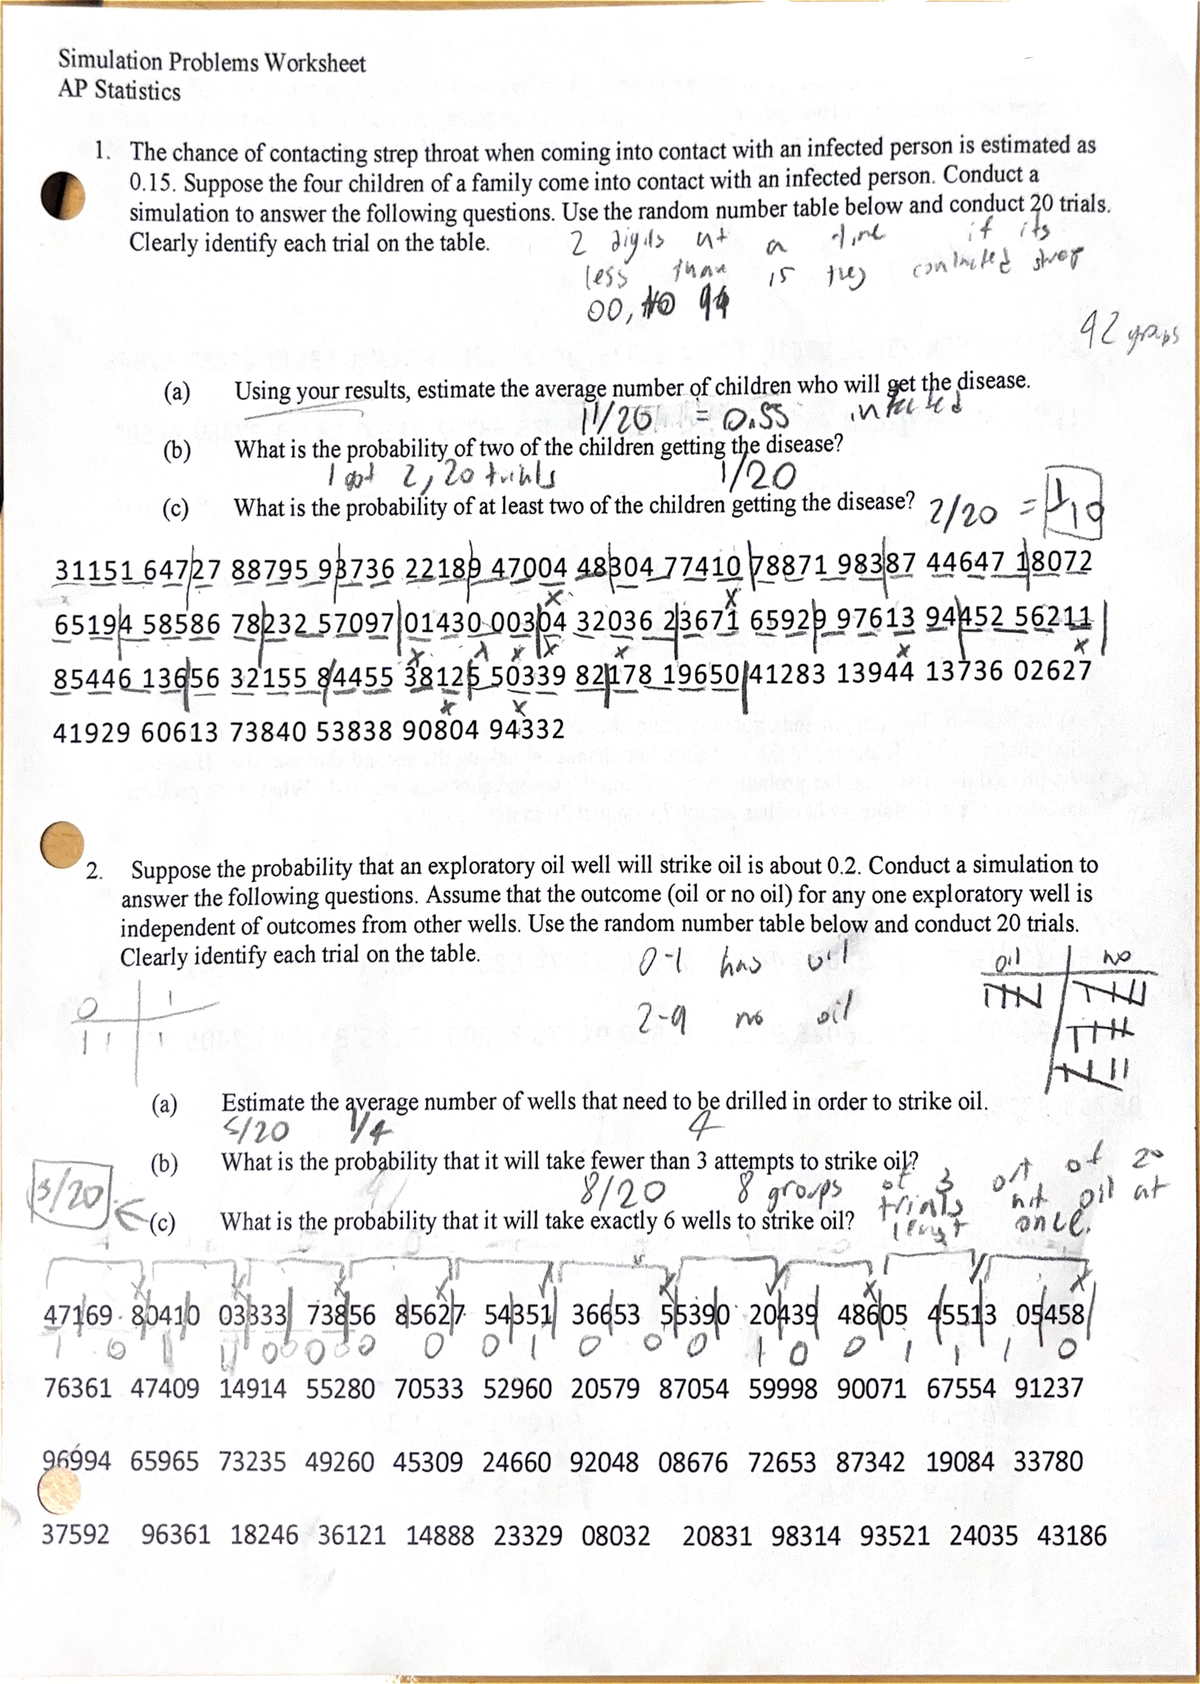 Simulation Problems Worksheet
AP Statistics
1. The chance of contacting strep throat when coming into contact with an infected person is estimated as
0.15. Suppose the four children of a family come into contact with an infected person. Conduct a
simulation to answer the following questions. Use the random number table below and conduct 20 trials.
Clearly identify each trial on the table.
2 digits at a time if its
less than 15 they contracted strep
00, to 99
92 graps
(a) Using your results, estimate the average number of children who will get the disease.
11/20 = 0.55 infected
(b) What is the probability of two of the children getting the disease?
1 got 2, 20 trials 1/20
(c) What is the probability of at least two of the children getting the disease? 2/20 = 1/10
31151 64727 88795 93736 22189 47004 48304 77410 78871 98387 44647 18072
65194 58586 78232 57097 01430 00304 32036 23671 65929 97613 94452 56211
85446 13656 32155 84455 38125 50339 82178 19650 41283 13944 13736 02627
41929 60613 73840 53838 90804 94332
2. Suppose the probability that an exploratory oil well will strike oil is about 0.2. Conduct a simulation to
answer the following questions. Assume that the outcome (oil or no oil) for any one exploratory well is
independent of outcomes from other wells. Use the random number table below and conduct 20 trials.
Clearly identify each trial on the table.
0-1 has oil
2-9 no oil
oil no
0 1
(a) Estimate the average number of wells that need to be drilled in order to strike oil.
5/20 1/4 4
(b) What is the probability that it will take fewer than 3 attempts to strike oil?
8/20 8 groups of 3 out of 20
trials hit oil at
least once.
3/20
(c) What is the probability that it will take exactly 6 wells to strike oil?
47169 80410 03333 73856 85627 54351 36653 55390 20439 48605 45513 05458
1 0 1 1 0 0 0 0 0 0 0 1 0 0 0 1 0 0 1 1 1 0
76361 47409 14914 55280 70533 52960 20579 87054 59998 90071 67554 91237
96994 65965 73235 49260 45309 24660 92048 08676 72653 87342 19084 33780
37592 96361 18246 36121 14888 23329 08032 20831 98314 93521 24035 43186